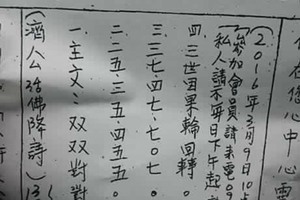 在修心中心靈
(2016年3月9日10点
參加會員請来電09
私人請示每日下午起
四三世因果輪回轉。
三三七四七、七0七。
二二五、三五四五五。
一.主文:双双對對
(濟公活佛降詩)